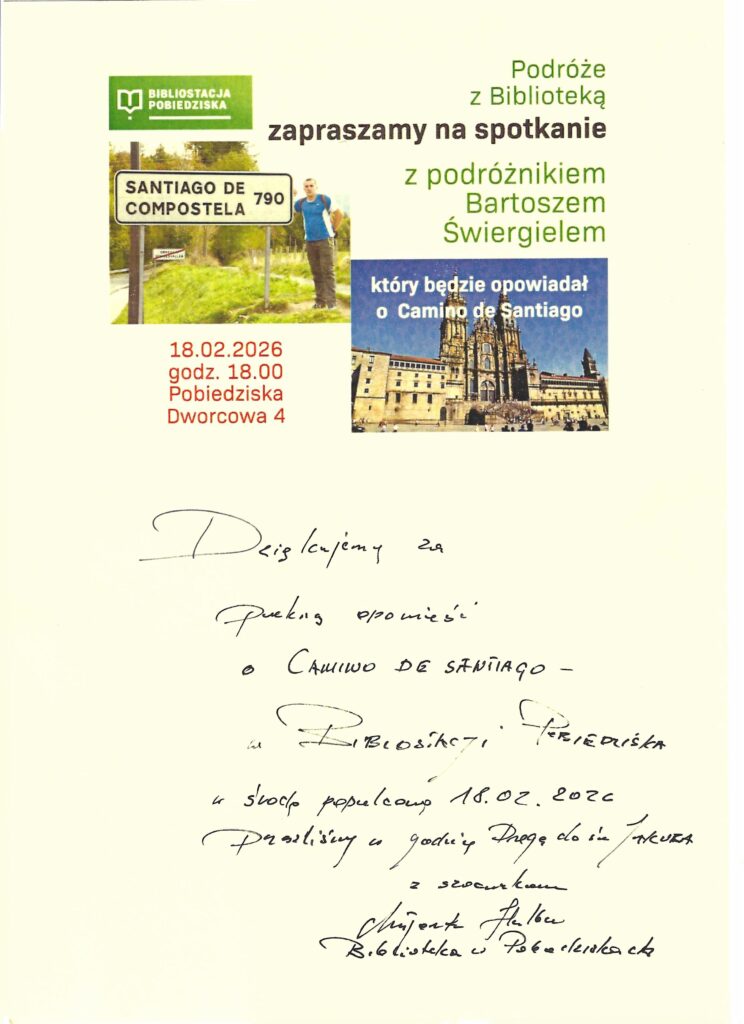 Podróże
z Biblioteką
zapraszamy na spotkanie
z podróżnikiem
Bartoszem
Świergielem
BIBLIOSTACJA
POBIEDZISKA
SANTIAGO DE
COMPOSTELA 790
który będzie opowiadał
o Camino de Santiago
18.02.2026
godz. 18.00
Pobiedziska
Dworcowa 4
Dziękujemy za
piękną opowieść
o CAMINO DE SANTIAGO –
w BIBLIOSTACJI POBIEDZISKA
w środę popielcową 18.02.2026
Przeszliśmy w godzinę Drogę do św JAKUBA
z szacunkiem
Biblioteka w Pobiedziskach